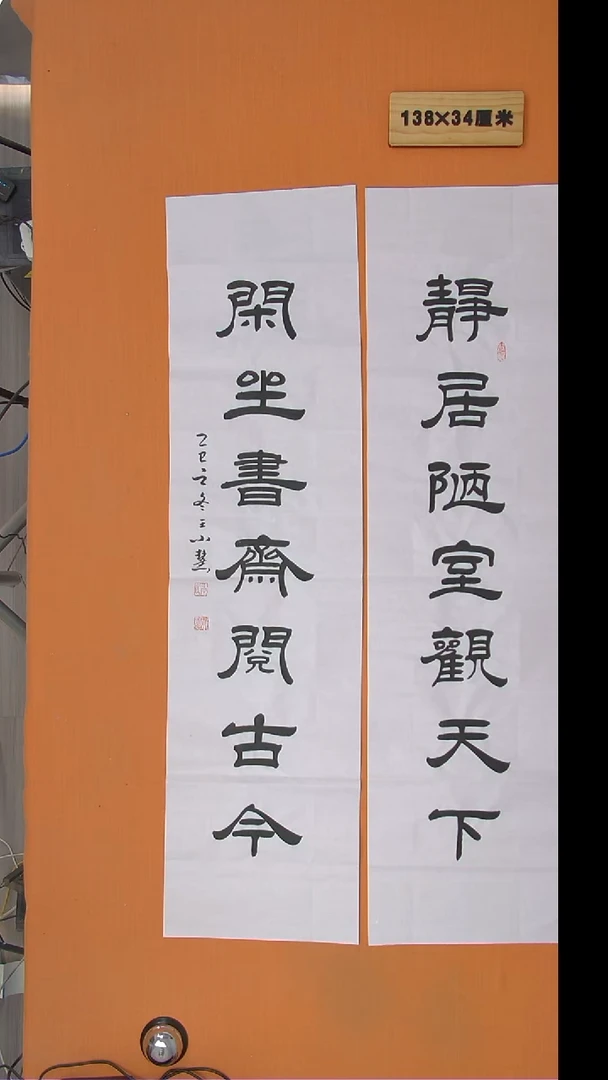 138×34厘米
靜居陋室觀天下
閑坐書齋閱古今
乙巳立冬王小慧